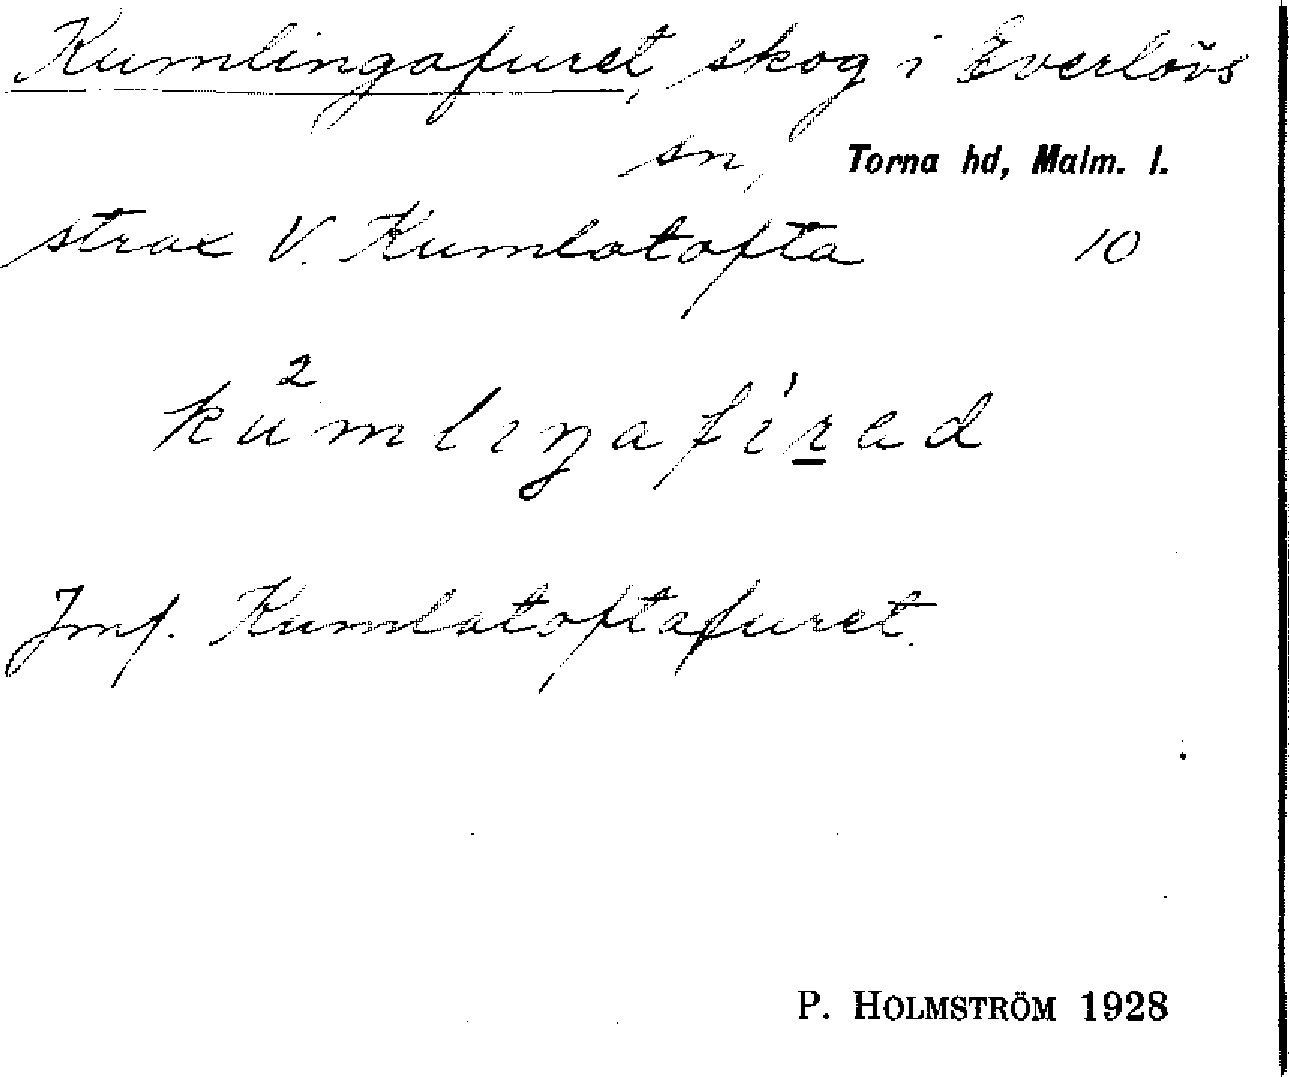 Kumlingafuret, skog i Everlövs
sn, Torna hd, Malm. l.
strax V. Kumlatofta 10
kùmliŋafírad
Jmf. Kumlatoftafuret.
P. HOLMSTRÖM 1928